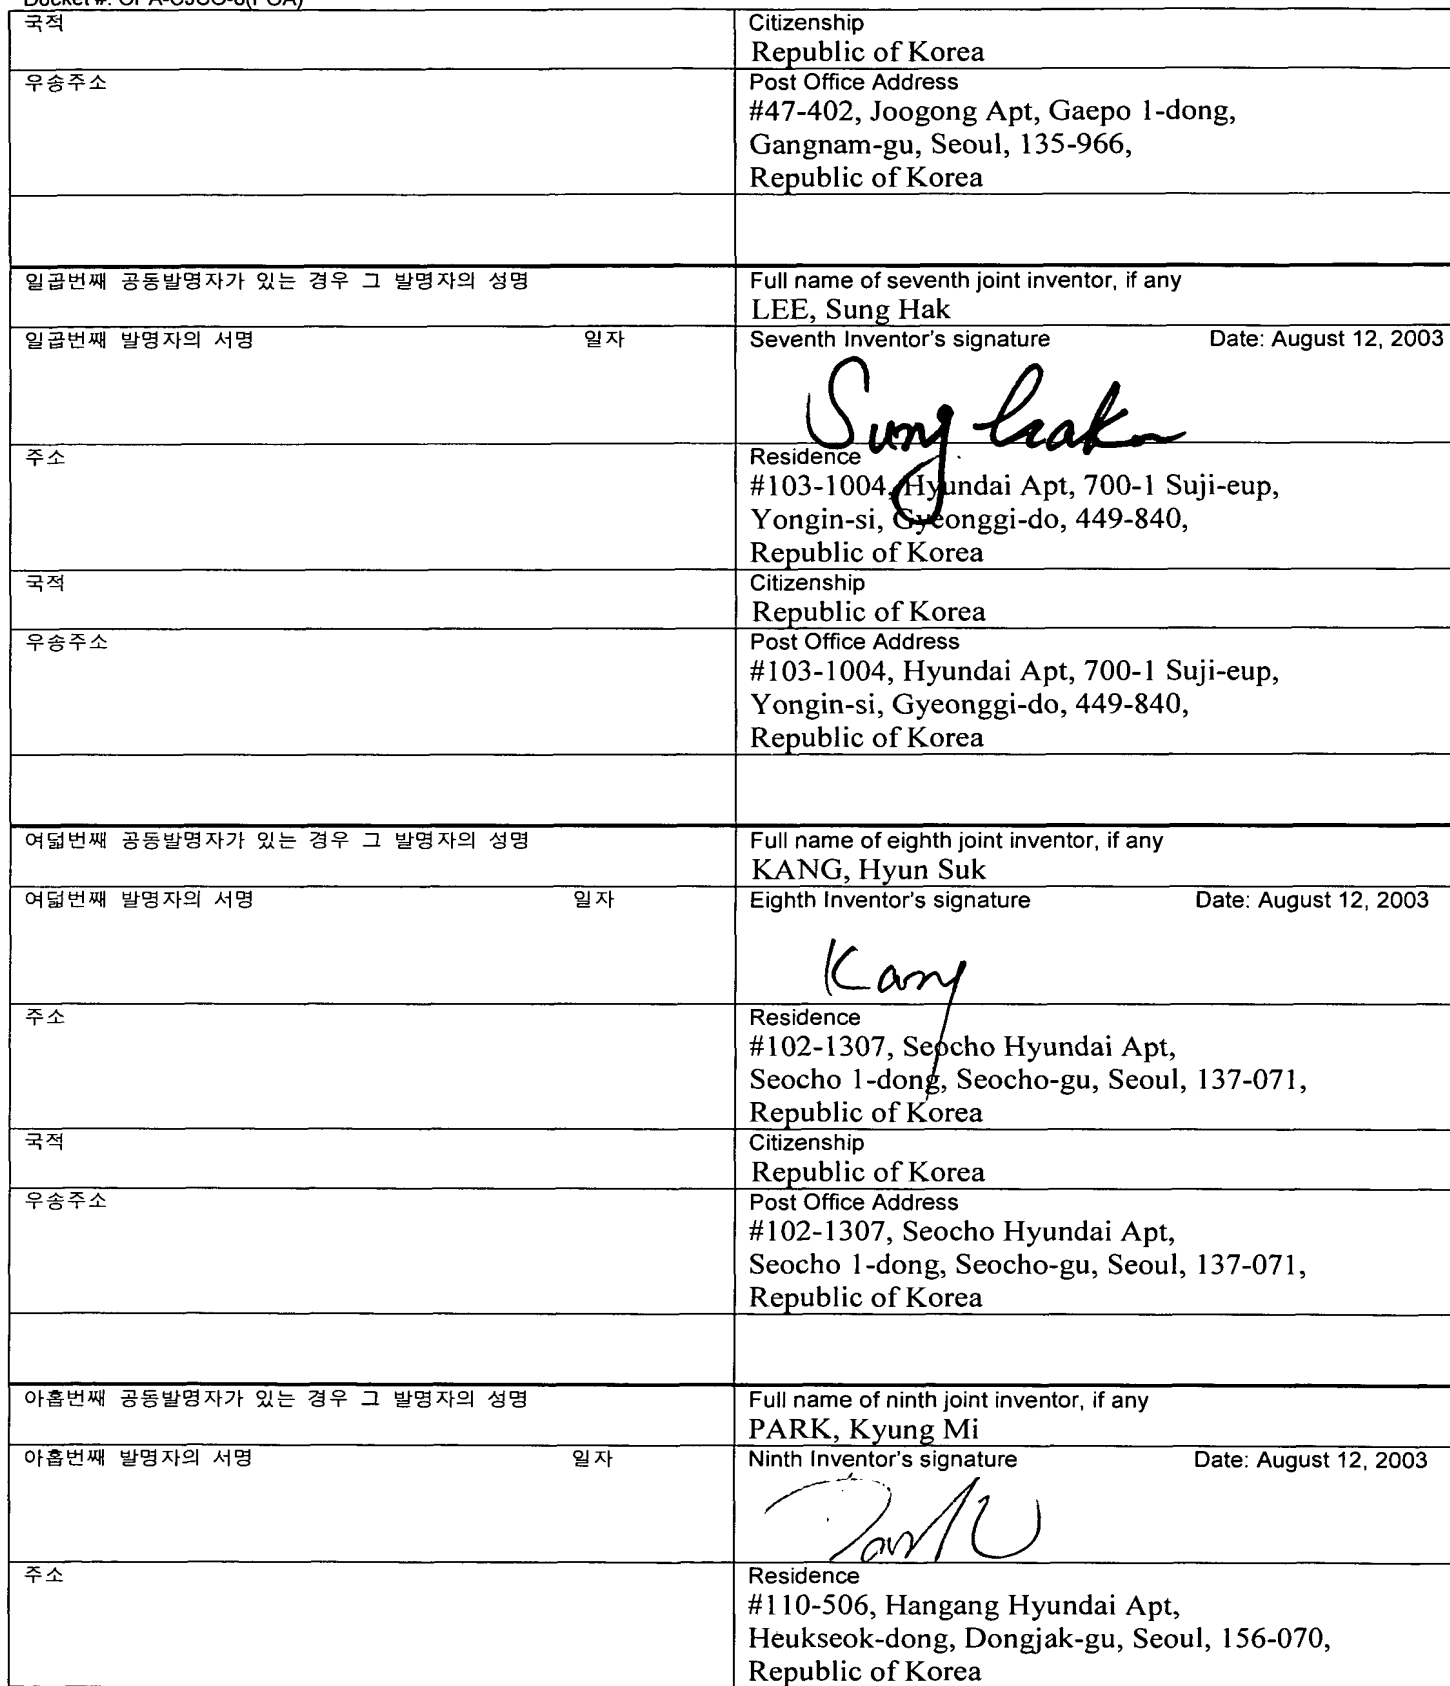 국적 Citizenship
Republic of Korea
우송주소 Post Office Address
#47-402, Joogong Apt, Gaepo 1-dong,
Gangnam-gu, Seoul, 135-966,
Republic of Korea
일곱번째 공동발명자가 있는 경우 그 발명자의 성명 Full name of seventh joint inventor, if any
LEE, Sung Hak
일곱번째 발명자의 서명 일자 Seventh Inventor's signature Date: August 12, 2003
Sung Hak
주소 Residence
#103-1004, Hyundai Apt, 700-1 Suji-eup,
Yongin-si, Gyeonggi-do, 449-840,
Republic of Korea
국적 Citizenship
Republic of Korea
우송주소 Post Office Address
#103-1004, Hyundai Apt, 700-1 Suji-eup,
Yongin-si, Gyeonggi-do, 449-840,
Republic of Korea
여덟번째 공동발명자가 있는 경우 그 발명자의 성명 Full name of eighth joint inventor, if any
KANG, Hyun Suk
여덟번째 발명자의 서명 일자 Eighth Inventor's signature Date: August 12, 2003
Kang
주소 Residence
#102-1307, Seocho Hyundai Apt,
Seocho 1-dong, Seocho-gu, Seoul, 137-071,
Republic of Korea
국적 Citizenship
Republic of Korea
우송주소 Post Office Address
#102-1307, Seocho Hyundai Apt,
Seocho 1-dong, Seocho-gu, Seoul, 137-071,
Republic of Korea
아홉번째 공동발명자가 있는 경우 그 발명자의 성명 Full name of ninth joint inventor, if any
PARK, Kyung Mi
아홉번째 발명자의 서명 일자 Ninth Inventor's signature Date: August 12, 2003
주소 Residence
#110-506, Hangang Hyundai Apt,
Heukseok-dong, Dongjak-gu, Seoul, 156-070,
Republic of Korea